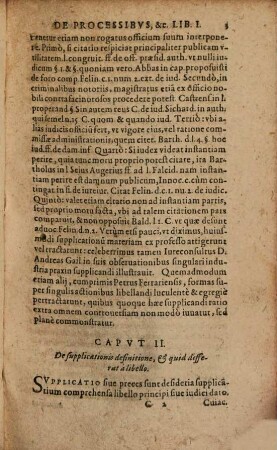 DE PROCESSIBVS, &c. LIB. I. 3
tenetur etiam non rogatus officium suum interpone-
re. Primò, si citatio respiciat principaliter publicam v-
tilitatem. l. congruit. ff. de off. præsid. auth. vt nulli iu-
dicum §. 1. & §. quoniam vero. Abbas in cap. proposuisti
de foro comp. Felin. c. 1. num. 2. ext. de iud. Secundò, in
criminibus notoriis, magistratus etiã ex officio nobi-
bis contra facinorosos procedere potest. Castrens. in l.
properand. § Sin autem reus C. de iud. Sichard. in auth.
qui semel n. 15. C. quom. & quando iud. Tertiò: vbi a-
lias iudicis officiũ fert, vt vigore eius, vel ratione commis-
sæ administrationis, quem citet. Barth. d. l. 4. §. hoc
iud. ff. de dam. inf. Quartò: Si iudex videat instantiam
perire, quia tunc motu proprio potest citare, ita Bar-
tholus in l. Seius Augerius ff. ad l. Falcid. nam instan-
tiam perire est dãgnum publicum, Innoc. c. cum contin-
gat in fi. de iureiur. Citat Felin. d. c. 1. nu. 2. de iudic.
Quintò: valet etiam citatio non ad instantiam partis,
sed proprio motu facta, vbi ad talem citationem pars
comparuit, & non opposuit Bald. l. 2. C. vt quæ desunt
aduoc. Felin. d. n. 2. Verùm etsi pauci, vt diximus, huius-
modi supplicationũ materiam ex professo attigerunt
vel tractarunt: celeberrimus tamen Iureconsultus D.
Andreas Gail in suis obseruationibus singulari indu-
stria praxin supplicandi illustrauit. Quemadmodum
etiam alij, cumprimis Petrus Ferrariensis, formas su-
per singulis actionibus libellandi luculentè & egregiè
pertractarunt, quibus quoque hæc supplicandi ratio
extra omnem controuersiam non modò iuuatur, sed
planè commonstratur.
CAPVT II.
De supplicationis definitione, & quid diffe-
rat à libello.
SVPPLICATIO siue preces sunt desideria supplicã-
tium comprehensa libello principi siue iudici dato.
C 2 Cuiac.